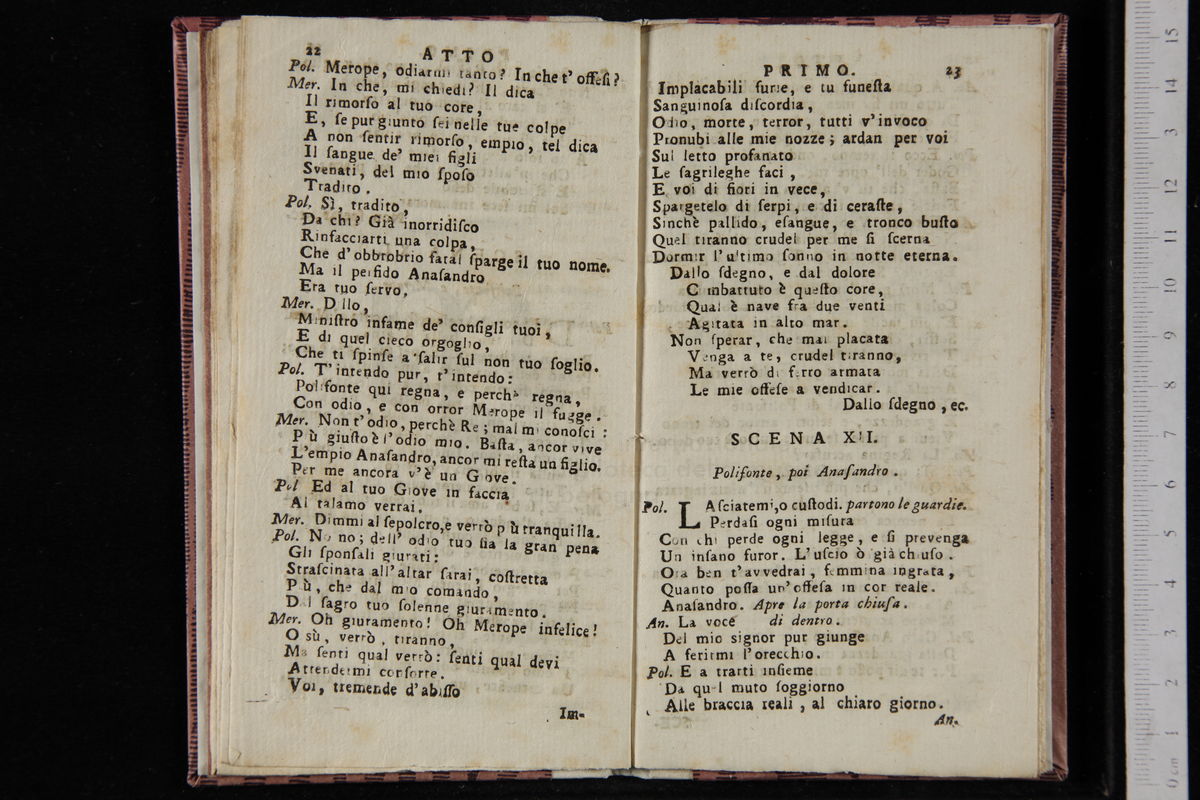 22 ATTO
Pol. Merope, odiarmi tanto? In che t' offeſi?
Mer. In che, mi chiedi? Il dica
Il rimorſo al tuo core,
E, ſe pur giunto ſei nelle tue colpe
A non ſentir rimorſo, empio, tel dica
Il ſangue de' miei figli
Svenati, del mio ſpoſo
Tradito.
Pol. Sì, tradito,
Da chi? Già inorridiſco
Rinfacciarti una colpa,
Che d' obbrobrio fatal ſparge il tuo nome.
Ma il perfido Anaſandro
Era tuo ſervo.
Mer. D llo,
Miniſtro infame de' conſigli tuoi,
E di quel cieco orgoglio,
Che ti ſpinſe a ſalir ſul non tuo ſoglio.
Pol. T' intendo pur, t' intendo:
Polifonte qui regna, e perchè regna,
Con odio, e con orror Merope il fugge.
Mer. Non t' odio, perchè Re; mal mi conoſci:
Più giuſto è l' odio mio. Baſta, ancor vive
L' empio Anaſandro, ancor mi reſta un figlio.
Per me ancora v' è un Giove.
Pol Ed al tuo Giove in faccia
Al talamo verrai.
Mer. Dimmi al ſepolcro, e verrò più tranquilla.
Pol. No no; dell' odio tuo ſia la gran pena
Gli ſponſali giurati:
Straſcinata all' altar ſarai, coſtretta
Più, che dal mio comando,
Dal ſagro tuo ſolenne giuramento.
Mer. Oh giuramento! Oh Merope infelice!
O sù, verrò, tiranno,
Ma ſenti qual verrò: ſenti qual devi
Attendermi conſorte.
Voi, tremende d' abiſſo
Im-
PRIMO. 23
Implacabili furie, e tu funeſta
Sanguinoſa diſcordia,
Odio, morte, terror, tutti v' invoco
Pronubi alle mie nozze; ardan per voi
Sul letto profanato
Le ſagrileghe faci,
E voi di fiori in vece,
Spargetelo di ſerpi, e di ceraſte,
Sinchè pallido, eſangue, e tronco buſto
Quel tiranno crudel per me ſi ſcerna
Dormir l' ultimo ſonno in notte eterna.
Dallo ſdegno, e dal dolore
C mbattuto è queſto core,
Qual è nave fra due venti
Agitata in alto mar.
Non ſperar, che mai placata
Venga a te, crudel tiranno,
Ma verrò di ferro armata
Le mie offeſe a vendicar.
Dallo ſdegno, ec.
SCENA XII.
Polifonte, poi Anaſandro.
Pol. LAſciatemi, o cuſtodi. partono le guardie.
Perdaſi ogni miſura
Con chi perde ogni legge, e ſi prevenga
Un inſano furor. L' uſcio ò già chiuſo.
Ora ben t' avvedrai, femmina ingrata,
Quanto poſſa un' offeſa in cor reale.
Anaſandro. Apre la porta chiuſa.
An. La voce di dentro.
Del mio signor pur giunge
A ferirmi l' orecchio.
Pol. E a trarti inſieme
Da quel muto ſoggiorno
Alle braccia reali, al chiaro giorno.
An.
0 cm 1 2 3 4 5 6 7 8 9 10 11 12 13 14 15